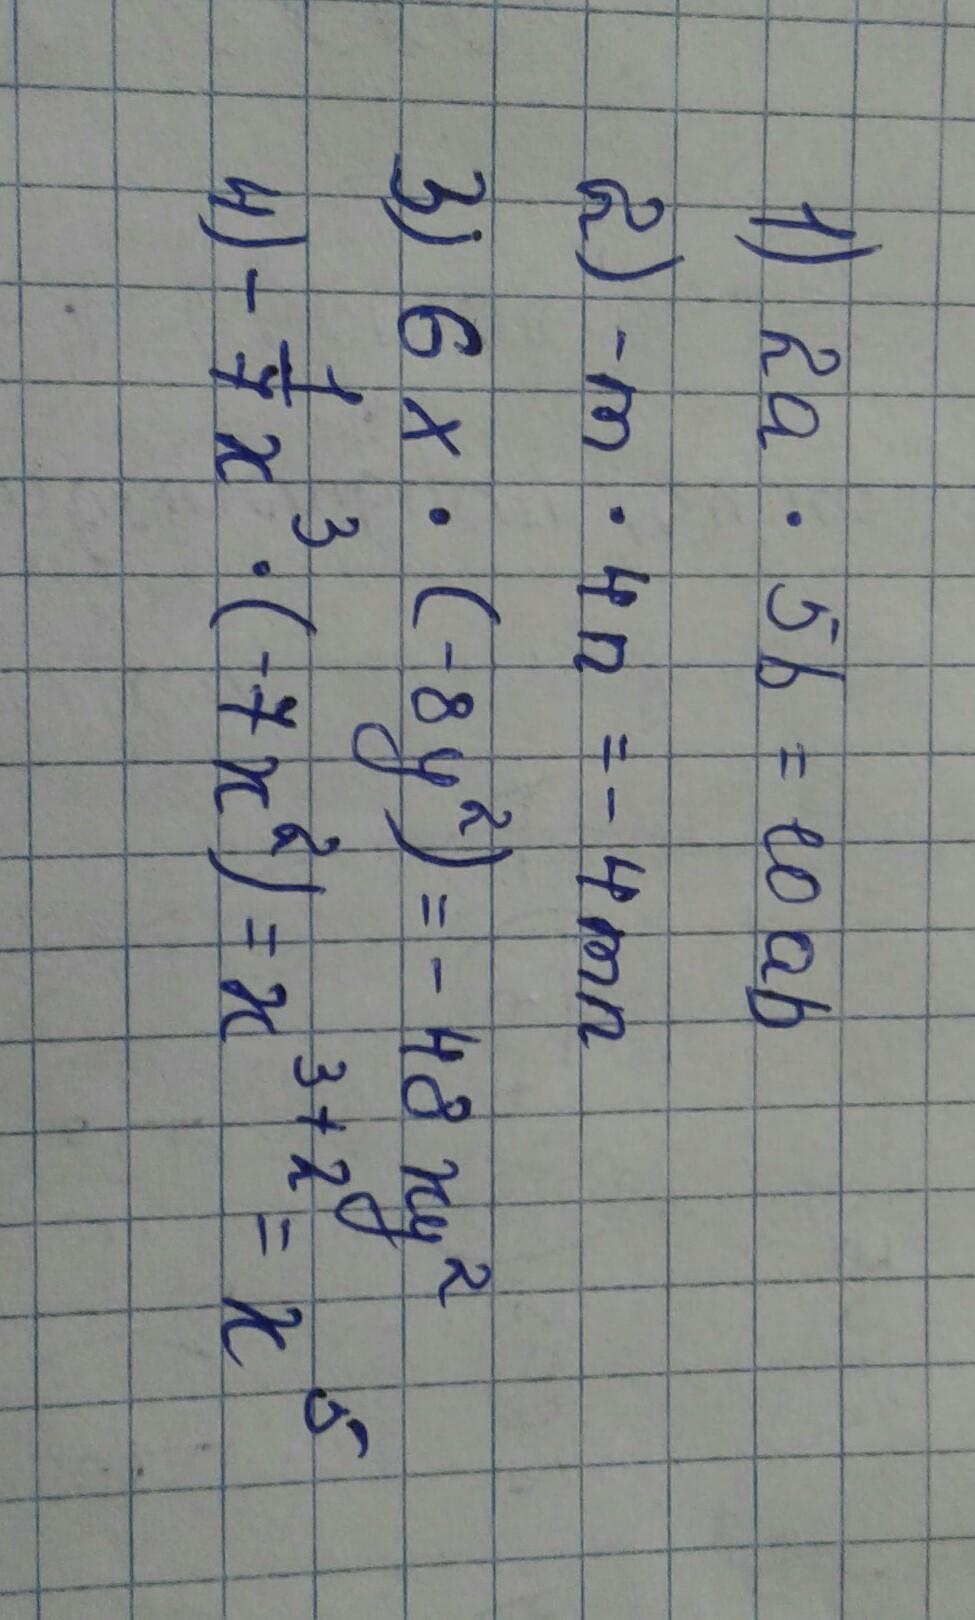 1) 2a · 5b = 10ab
2) -m · 4n = -4mn
3) 6x · (-8y²) = -48xy²
4) -1/7 x³ · (-7x²) = x³⁺² = x⁵